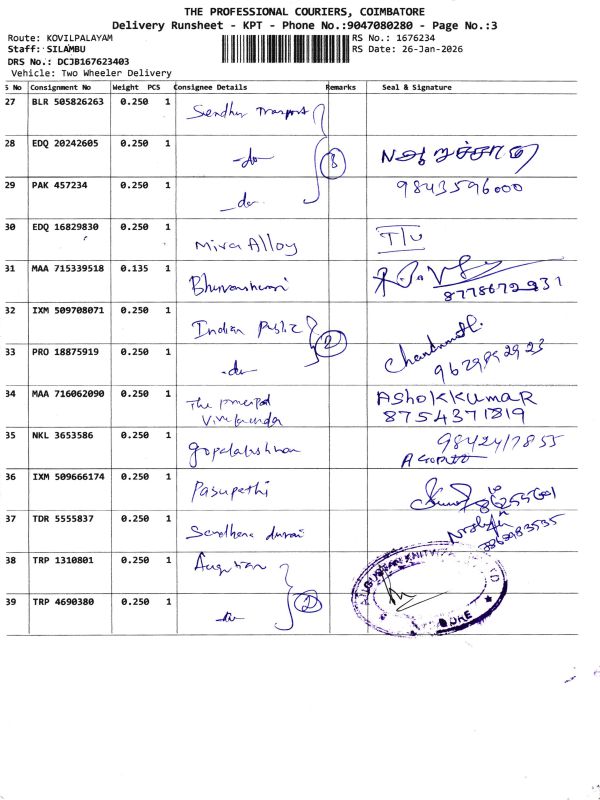 THE PROFESSIONAL COURIERS, COIMBATORE
Delivery Runsheet - KPT - Phone No.:9047080280 - Page No.:3
Route: KOVILPALAYAM
Staff: SILAMBU
DRS No.: DCJB167623403
Vehicle: Two Wheeler Delivery
RS No.: 1676234
RS Date: 26-Jan-2026
S No Consignment No Weight PCS Consignee Details Remarks Seal & Signature
27 BLR 505826263 0.250 1 Sendhur Transport
28 EDQ 20242605 0.250 1 -do- 3
29 PAK 457234 0.250 1 -do- 9843596000
30 EDQ 16829830 0.250 1 Mira Alloy
31 MAA 715339518 0.135 1 Bhuvaneshwari
32 IXM 509708071 0.250 1 Indian Public 2
33 PRO 18875919 0.250 1 -do- 9629892923
34 MAA 716062090 0.250 1 The principal Vivekananda ASHOKKUMAR 8754371819
35 NKL 3653586 0.250 1 gopalakrishnan 9842417855
36 IXM 509666174 0.250 1 Pasupathi
37 TDR 5555837 0.250 1
38 TRP 1310801 0.250 1
39 TRP 4690380 0.250 1 -do- 2